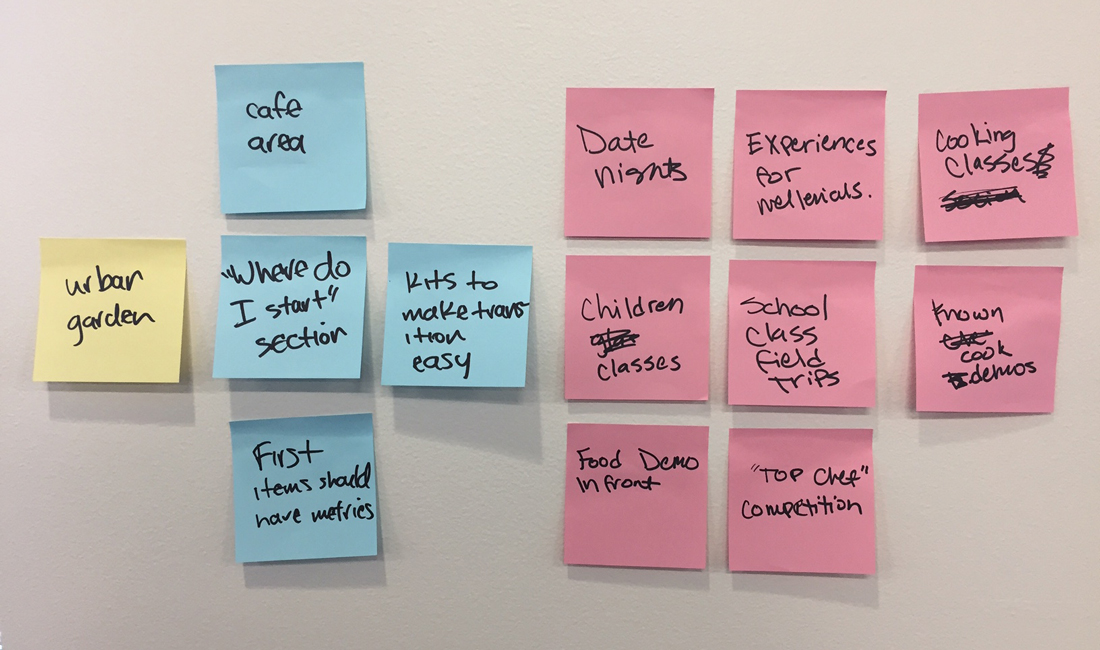 cafe
area
urban
garden
"Where do
I start"
section
Kits to
make trans
ition
easy
First
items should
have metrics
Date
nights
Experiences
for
mellenials.
Cooking
Classes
Children
classes
School
Class
field
trips
Known
cook
demos
Food Demo
in front
"Top Chef"
Competition